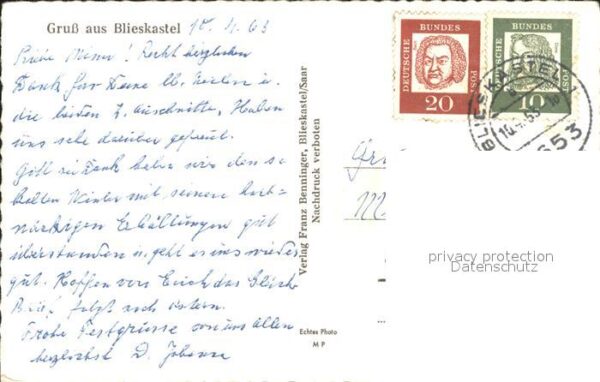 Gruß aus Blieskastel 10.4.63
Herzlichen
Dank für Deine lb. Zeilen u.
die beiden Z. Ausschnitte. Haben
uns sehr darüber gefreut.
Gott sei Dank haben wir den so
kalten Winter mit seinen hart-
näckigen Erkältungen gut
überstanden u. geht es uns wieder
gut. Hoffen von Euch das Gleiche
Brief folgt nach Ostern.
Frohe Festgrüsse von uns allen
herzlichst D. Johanna
Verlag Franz Benninger, Blieskastel/Saar
Nachdruck verboten
Echtes Photo
M P
DEUTSCHE BUNDESPOST
20
DEUTSCHE BUNDESPOST
10
BLIESKASTEL
653
privacy protection
Datenschutz